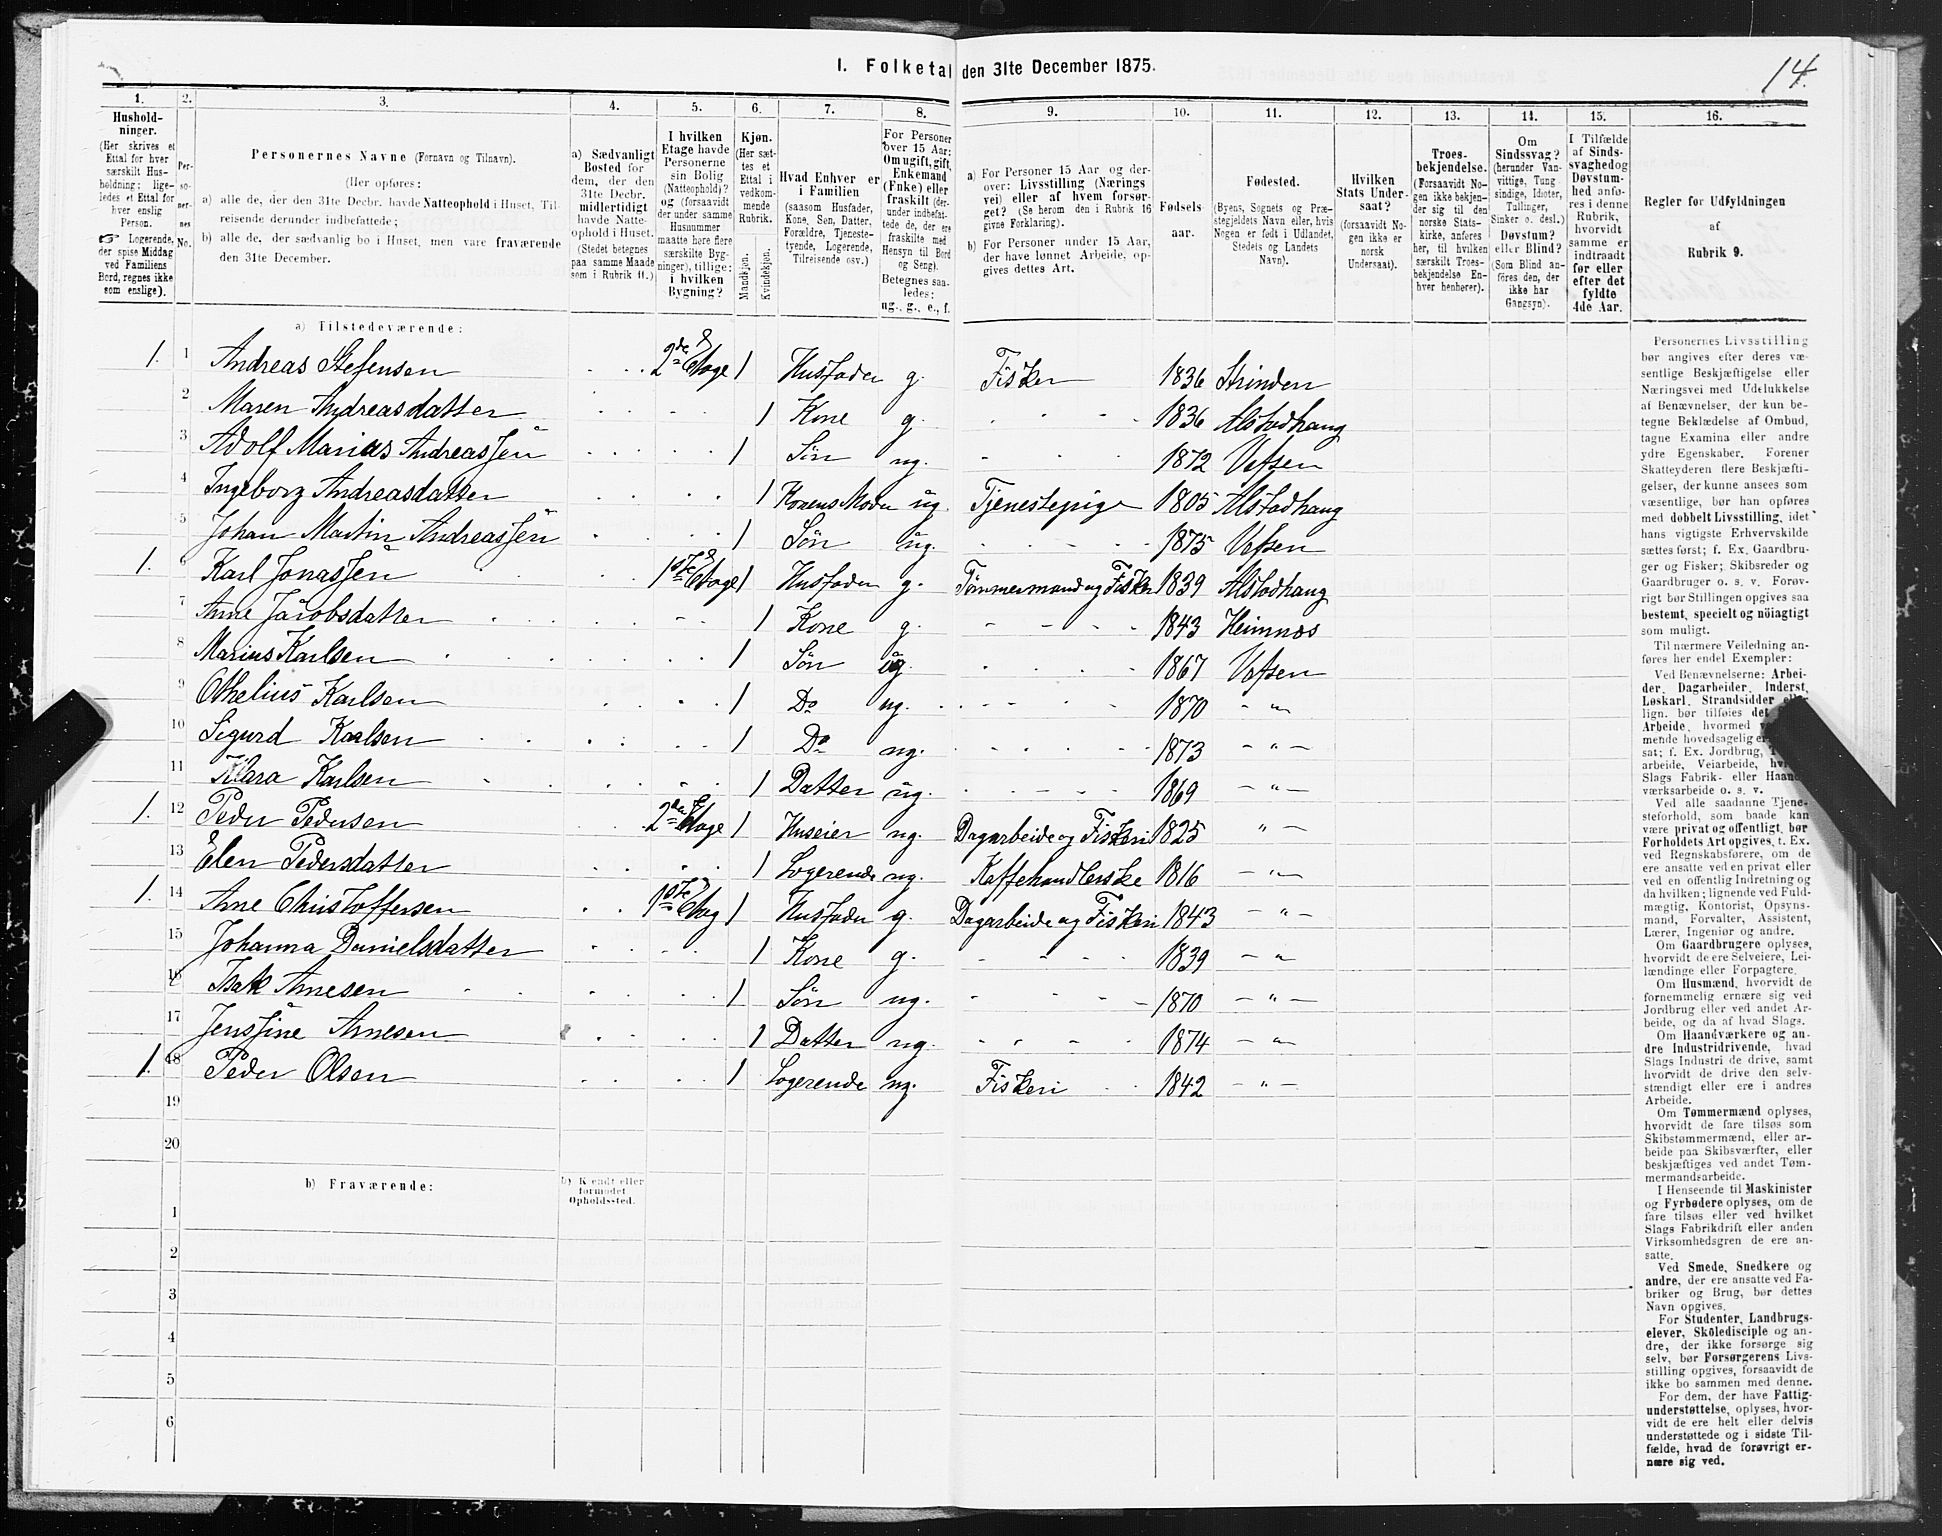 14.
I. Folketal den 31te December 1875.
1. 2. 3. 4. 5. 6. 7. 8. 9. 10. 11. 12. 13. 14. 15. 16.
Hushold-
ninger.
(Her skrives et
Ettal for hver
særskilt Hus-
holdning; lige-
ledes et Ettal for
hver enslig
Person.
☞ Logerende,
der spise Middag
ved Familiens
Bord, regnes ikke
som enslige).
Per-
so-
ner-
nes
No.
Personernes Navne (Fornavn og Tilnavn).
(Her opføres:
a) alle de, der den 31te Decbr. havde Natteophold i Huset, Til-
reisende derunder indbefattede;
b) alle de, der sædvanlig bo i Huset, men vare fraværende
den 31te December.
a) Sædvanligt
Bosted for
dem, der den
31te Decbr.
midlertidigt
havde Natte-
ophold i Huset.
(Stedet betegnes
paa samme Maade
som i Rubrik 11.)
I hvilken
Etage havde
Personerne
sin Bolig
(Natteophold)?
og (forsaavidt
der under samme
Husnummer
maatte høre flere
særskilte Byg-
ninger), tillige:
i hvilken
Bygning?
Kjøn.
(Her sæt-
tes et
Ettal i
vedkom-
mende
Rubrik.
Mandkjøn.
Kvindekjøn.
Hvad Enhver er
i Familien
(saasom Husfader,
Kone, Søn, Datter,
Forældre, Tjeneste-
tyende, Logerende,
Tilreisende osv.)
For Personer
over 15 Aar:
Om ugift, gift,
Enkemand
(Enke) eller
fraskilt (der-
under indbefat-
tede de, der ere
fraskilte med
Hensyn til Bord
og Seng).
Betegnes saa-
ledes:
ug., g., e., f.
a) For Personer 15 Aar og der-
over: Livsstilling (Nærings
vei) eller af hvem forsør-
get? (Se herom den i Rubrik 16
givne Forklaring).
b) For Personer under 15 Aar,
der have lønnet Arbeide, op-
gives dettes Art.
Fødsels
aar.
Fødested.
(Byens, Sognets og Præ-
stegjeldets Navn eller, hvis
Nogen er født i Udlandet,
Stedets og Landets
Navn).
Hvilken
Stats Under-
saat?
(forsaavidt No-
gen ikke er
norsk
Undersaat).
Troes-
bekjendelse.
(Forsaavidt No-
gen ikke bekjen-
der sig til den
norske Stats-
kirke, anføres
her, til hvilken
særskilt Troes-
bekjendelse En-
hver henhører).
Om
Sindssvag?
(herunder Van-
vittige, Tung-
sindige, Idioter,
Tullinger,
Sinker o. desl.)
Døvstum?
eller Blind?
(Som Blind an-
føres den, der
ikke har
Gangsyn).
I Tilfælde
af Sinds-
svaghed og
Døvstum-
hed anfø-
res i denne
Rubrik,
hvorvidt
samme er
indtraadt
før eller
efter det
fyldte
4de Aar.
Regler for Udfyldningen
af
Rubrik 9.
a) Tilstedeværende:
1. 1 Andreas Stefensen 2den Etage 1 Husfader g. Fisker 1836 Strinden
2 Maren Andreasdatter 1 Kone g. 1836 Alstadhaug
3 Adolf Marius Andreassen 1 Søn ug. 1872 Vefsen
4 Ingeborg Andreasdatter 1 Konens Moder ug. Tjenestepige 1805 Alstadhaug
5 Johan Martin Andreassen 1 Søn ug. 1875 Vefsen
1. 6 Karl Jonassen 1ste Etage 1 Husfader g. Tømmermand og Fisker 1839 Alstadhaug
7 Anne Jacobsdatter 1 Kone g. 1843 Hemnæs
8 Marius Karlsen 1 Søn ug. 1867 Vefsen
9 Othelius Karlsen 1 Do ug. 1870 - " -
10 Sigurd Karlsen 1 Do ug. 1873 - " -
11 Klara Karlsen 1 Datter ug. 1869 - " -
1. 12 Peder Pedersen 2den Etage 1 Huseier ug. Dagarbeide og Fiskeri 1825 " -
13 Elen Pedersdatter 1 Logerende ug. Kaffehandlerske 1816 - " -
1. 14 Arne Christoffersen 1ste Etag 1 Husfader g. Dagarbeide og Fiskeri 1843 - " -
15 Johanna Danielsdatter 1 Kone g. 1839 - "
16 Isak Arnesen 1 Søn ug. 1870 - " -
17 Jensine Arnesen 1 Datter ug. 1874 - " -
1. 18 Peder Olsen 1 Logerende ug. Fiskeri 1842 - " -
19
20
b) Fraværende:
b) Kjendt eller
formodet
Opholdssted.
1
2
3
4
5
6
Personernes Livsstilling
bør angives efter deres væ-
sentlige Beskjæftigelse eller
Næringsvei med Udelukkelse
af Benævnelser, der kun be-
tegne Beklædelse af Ombud,
tagne Examina eller andre
ydre Egenskaber. Forener
Skatteyderen flere Beskjæfti-
gelser, der kunne ansees som
væsentlige, bør han opføres
med dobbelt Livsstilling, idet
hans vigtigste Erhvervskilde
sættes først; f. Ex. Gaardbru-
ger og Fisker; Skibsreder og
Gaardbruger o. s. v. Forøv-
rigt bør Stillingen opgives saa
bestemt, specielt og nöiagtigt
som muligt.
Til nærmere Veiledning an-
føres her endel Exempler:
Ved Benævnelserne: Arbei-
der, Dagarbeider, Inderst,
Løskarl, Strandsidder
lign. bør tilføies det
Arbeide, hvormed
mende hovedsagelig er
sat; f. Ex. Jordbrug,
arbeide, Veiarbeide,
Slags Fabrik- eller
værksarbeide o. s. v.
Ved alle saadanne Tjene-
steforhold, som baade kan
være privat og offentligt, bør
Forholdets Art opgives, t. Ex.
ved Regnskabsførere, om de
ere ansatte ved en privat eller
ved en offentlig Indretning og
da hvilken; lignende ved Fuld-
mægtig, Kontorist, Opsyns-
mand, Forvalter, Assistent,
Lærer, Ingeniør og andre.
Om Gaardbrugere oplyses,
hvorvidt de ere Selveiere, Lei-
lændinge eller Forpagtere.
Om Husmænd, hvorvidt de
fornemmelig ernære sig ved
Jordbrug eller ved andet Ar-
beide, og da af hvad Slags.
Om Haandværkere og an-
dre Industridrivende, hvad
Slags Industri de drive, samt
hvorvidt de drive den selv-
stændigt eller ere i andres
Arbeide.
Om Tømmermænd oplyses,
hvorvidt de fare tilsøs som
Skibstømmermænd, eller ar-
beide paa Skibsværfter, eller
beskjæftiges ved andet Tøm-
mermandsarbeide.
I Henseende til Maskinister
og Fyrbødere oplyses, om de
fare tilsøs eller ved hvilket
Slags Fabrikdrift eller anden
Virksomhedsgren de ere an-
satte.
Ved Smede, Snedkere og
andre, der ere ansatte ved Fa-
briker og Brug, bør dettes
Navn opgives.
For Studenter, Landbrugs-
elever, Skoledisciple og an-
dre, der ikke forsørge sig
selv, bør Forsørgerens Livs-
stilling opgives, forsaavidt de
ikke bo sammen med denne.
For dem, der have Fattig-
understøttelse, oplyses, hvor-
vidt de ere helt eller delvis
understøttede og i sidste Til-
fælde, hvad de forøvrigt er-
nære sig ved.